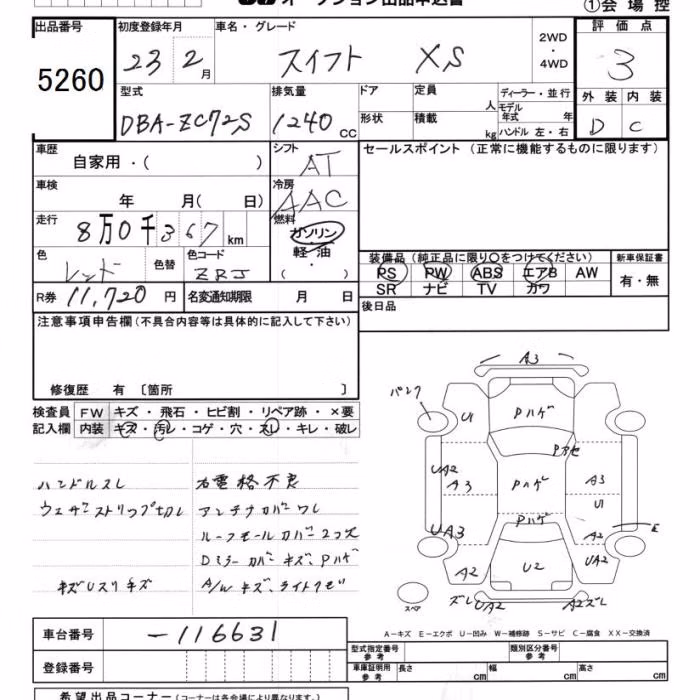 オークション出品申込書
①会場控
出品番号
5260
初度登録年月
23 2月
車名・グレード
スイフト XS
2WD・4WD
評価点
3
外装 内装
D C
型式
DBA-ZC72S
排気量
1240 CC
ドア
形状
定員 人
積載 kg
ディーラー・並行
モデル年式 年
ハンドル 左・右
車歴
自家用・( )
シフト
AT
セールスポイント(正常に機能するものに限ります)
車検
年 月( 日)
冷房
AAC
走行
8万0千367km
燃料
ガソリン・軽油・( )
色
レッド
色替
色コード
ZRJ
装備品(純正品に限り○をつけてください)
PS PW ABS エアB AW
SR ナビ TV カワ
新車保証書
有・無
R券 11,720 円
名変通知期限 月 日
後日品
注意事項申告欄(不具合内容等は具体的に記入して下さい)
修復歴 有〔箇所 〕
検査員記入欄
FW キズ・飛石・ヒビ割・リペア跡・×要
内装 キズ・汚レ・コゲ・穴・スレ・キレ・破レ
ハンドルスレ
ウェザーストリップ切レ
キズUスリキズ
右電格不良
アンテナカバーワレ
ルーフモールカバー2つ欠
Dミラーカバーキズ、Pハゲ
A/Wキズ、ライトクモリ
A3
パンク
Pハゲ
U1
UA2
A3
Pハゲ
A3
U1
Pハゲ
UA3
A2
E
A2
U2
UA2
スペア
ズレUA2
A2ズレ
A-キズ E-エクボ U-凹み W-補修跡 S-サビ C-腐食 XX-交換済
車台番号
-116631
登録番号
型式指定番号 参考
類別区分番号 参考
車庫証明用 参考
長さ cm
幅 cm
高さ cm
希望出品コーナー(コーナーは各会場により異なります。)